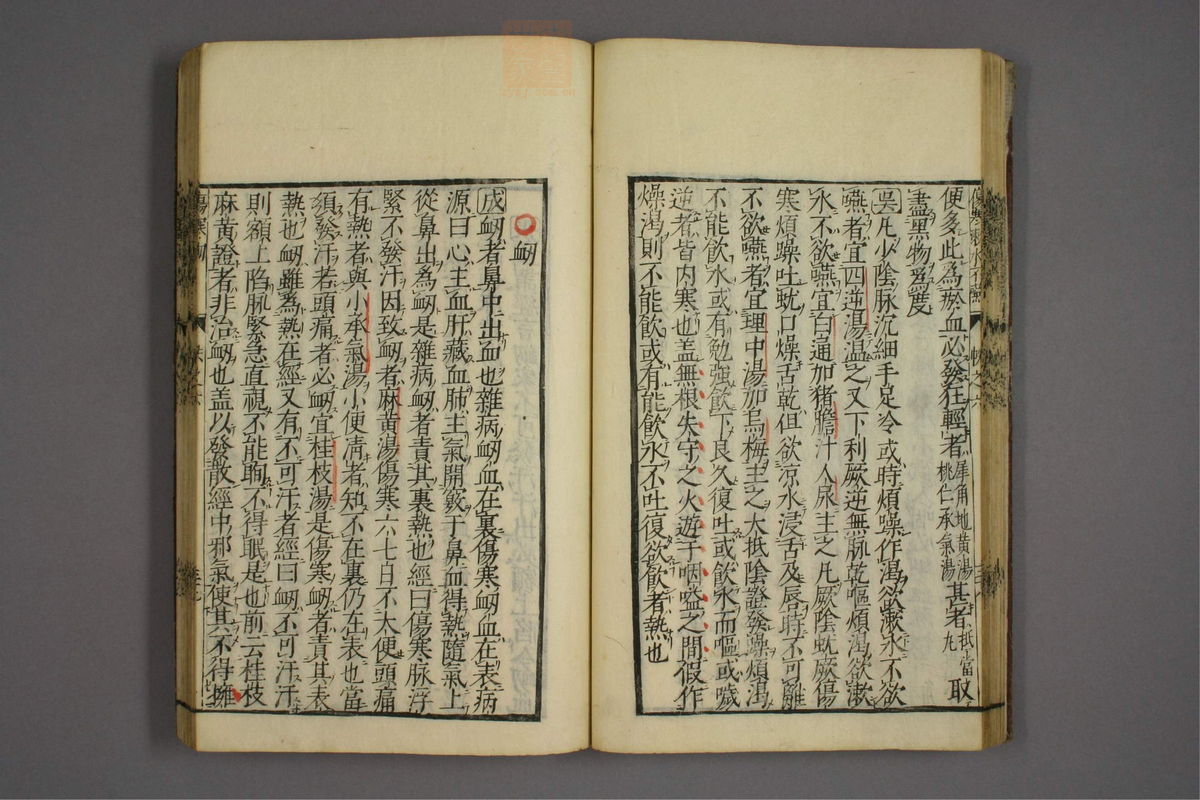 便多此為瘀血必發狂輕者犀角地黃湯桃仁承氣湯甚者抵當丸取
盡黑物為度
吳凡少陰脉沉細手足冷或時煩躁作渴欲漱水不欲
嚥者宜四逆湯温之又下利厥逆無脉乾嘔煩渴欲漱
水不欲嚥宜白通加豬膽汁人尿主之凡厥陰蚘厥傷
寒煩躁吐蚘口燥舌乾但欲凉水浸舌及唇時不可離
不欲嚥者宜理中湯加烏梅主之大抵陰證發躁煩渴
不能飲水或有勉強飲下良久復吐或飲水而嘔或噦
逆者皆内寒也盖無根失守之火遊于咽嗌之間假作
燥渴則不能飲或有能飲水不吐復欲飲者熱也
衂
成衂者鼻中出血也雜病衂血在裏傷寒衂血在表病
源曰心主血肝藏血肺主氣開竅于鼻血得熱隨氣上
從鼻出為衂是雜病衂者責其裏熱也經曰傷寒脉浮
緊不發汗因致衂者麻黄湯傷寒六七日不大便頭痛
有熱者與小承氣湯小便淸者知不在裏仍在表也當
須發汗若頭痛者必衂宜桂枝湯是傷寒衂者責其表
熱也衂雖為熱在經又有不可汗者經曰衂不可汗汗
則額上陷脉緊急直視不能眴不得眠是也前云桂枝
麻黄證者非治衂也盖以發散經中邪氣使其不得擁